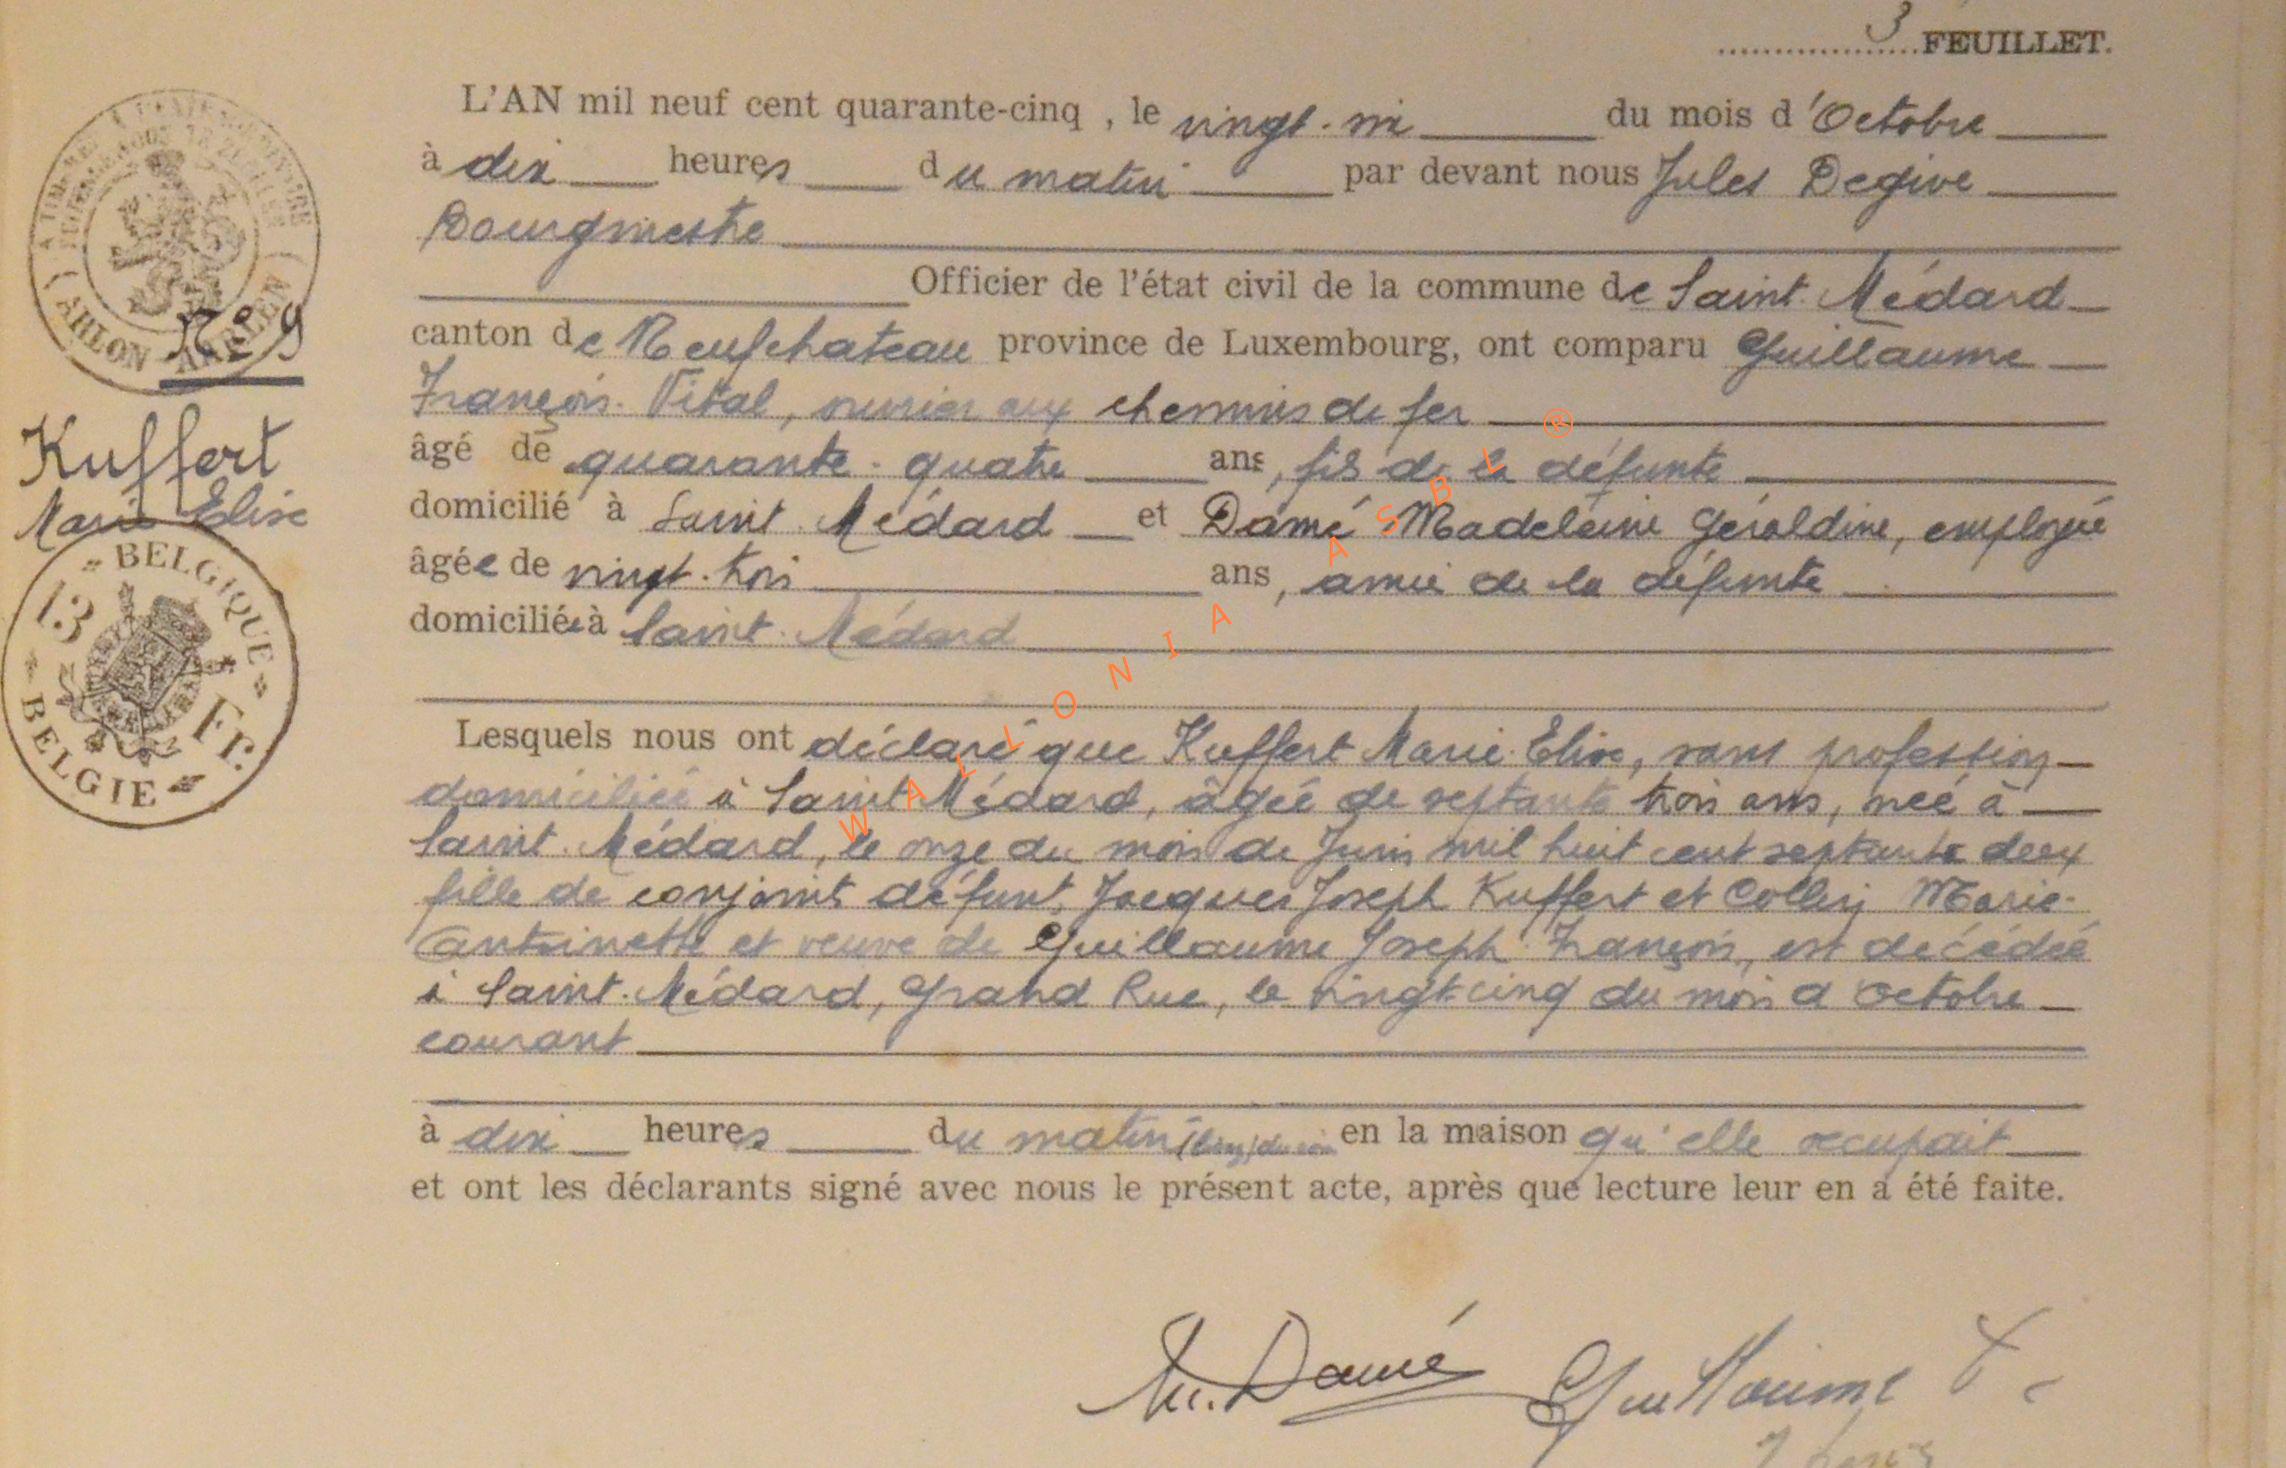 3 FEUILLET.
L'AN mil neuf cent quarante-cinq , le vingt-six du mois d'Octobre
à dix heures du matin par devant nous Jules Degive
Bourgmestre
Officier de l'état civil de la commune de Saint-Médard
canton de Neufchateau province de Luxembourg, ont comparu Guillaume
François-Vital, ouvrier aux chemins de fer
âgé de quarante-quatre ans, fils de la défunte
domicilié à Saint-Médard et Damé Madeleine Géraldine, employée
âgée de vingt-trois ans, amie de la défunte
domiciliée à Saint-Médard
Lesquels nous ont déclaré que Kuffert Marie-Elise, sans profession
domiciliée à Saint-Médard, âgée de septante trois ans, née à
Saint-Médard, le onze du mois de Juin mil huit cent septante deux
fille de conjoints défunt, Jacques Joseph Kuffert et Collin Marie-
Antoinette et veuve de Guillaume Joseph François, est décédée
à Saint-Médard, Grand Rue, le vingt-cinq du mois d'octobre
courant
à dix heures du matin en la maison qu'elle occupait
et ont les déclarants signé avec nous le présent acte, après que lecture leur en a été faite.
M. Damé Guillaume F.
ARLON AARLEN
N° 9
Kuffert
Marie Elise
BELGIQUE
13 Fr.
BELGIE
WALLONIA ASBL ®